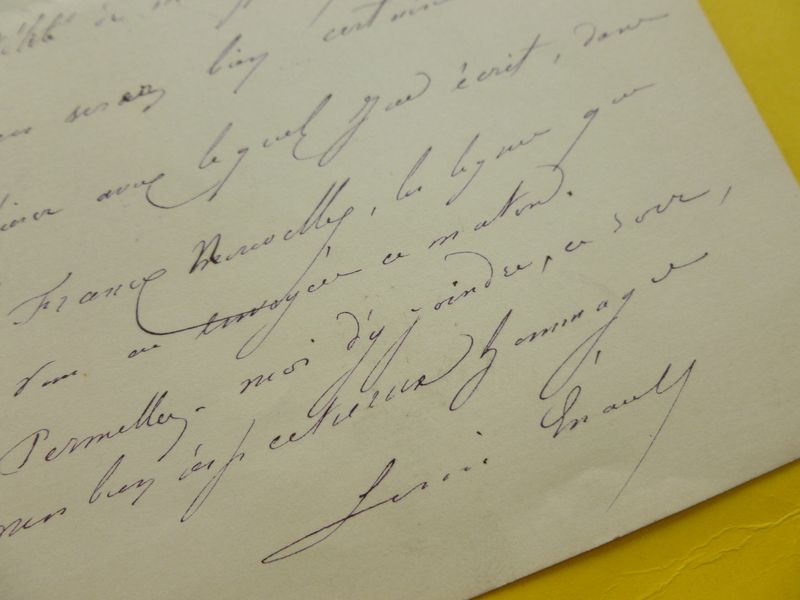 bien certain
avec lequel j'ai écrit, dans
France Nouvelle, les lignes que
vous ai envoyées ce matin.
Permettez-moi d'y joindre, ce soir,
mes bien respectueux hommages
Louis Énault